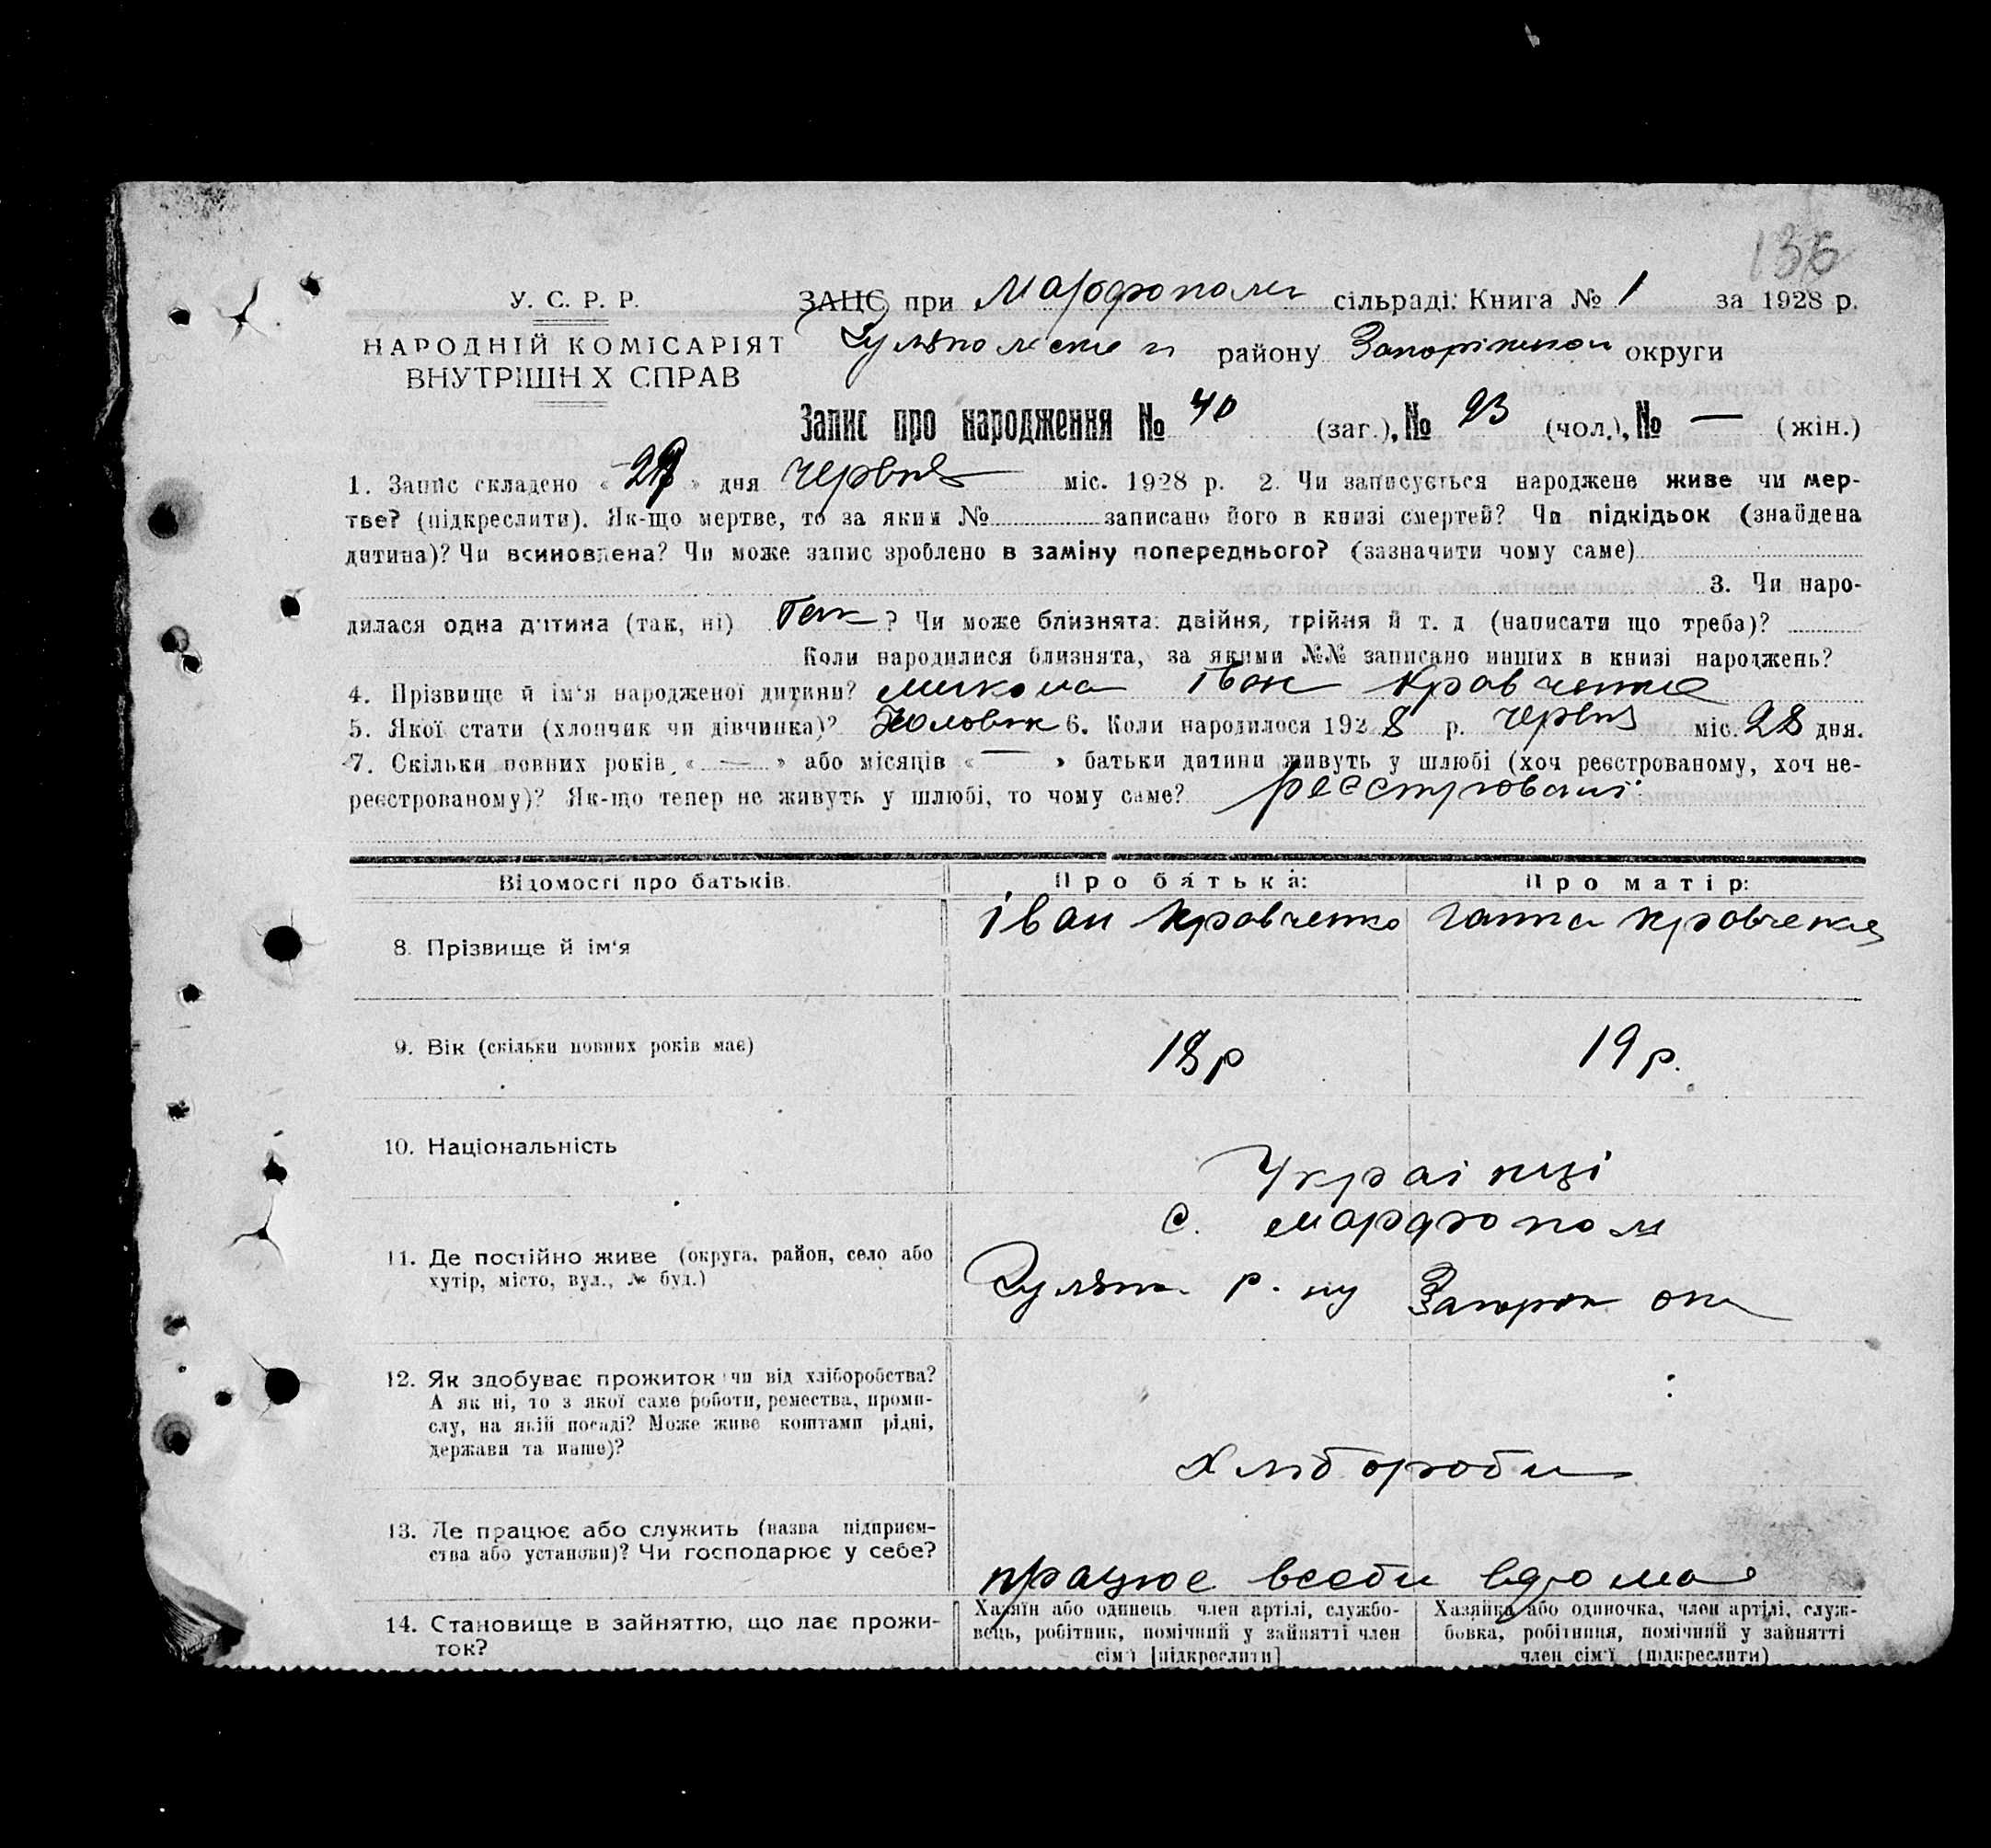 136
У. С. Р. Р.
НАРОДНІЙ КОМІСАРІЯТ
ВНУТРІШН Х СПРАВ
ЗАЦС при Марфополи сільраді: Книга № 1 за 1928 р.
Гуляполськи району Запоріжкои округи
Запис про народження № 40 (заг.), № 23 (чол.), № — (жін.)
1. Запис складено « » дня червня міс. 1928 р. 2. Чи записується народжене живе чи мер-
тве? (підкреслити). Як-що мертве, то за яким № записано його в книзі смертей? Чи підкідьок (знайдена
дитина)? Чи всиновлена? Чи може запис зроблено в заміну попереднього? (зазначити чому саме)
3. Чи наро-
дилася одна дитина (так, ні) Так ? Чи може близнята: двійня, трійня й т. д (написати що треба)?
Коли народилися близнята, за якими №№ записано инших в книзі народжень?
4. Прізвище й ім'я народженої дитини? Микола Іван Кравченко
5. Якої стати (хлопчик чи дівчинка)? Чоловік 6. Коли народилося 1928 р. червня міс. 28 дня.
7. Скільки повних років « — » або місяців « — » батьки дитини живуть у шлюбі (хоч реєстрованому, хоч не-
реєстрованому)? Як-що тепер не живуть у шлюбі, то чому саме? реєстровані
Відомості про батьків.
Про батька:
Про матір:
8. Прізвище й ім'я
Іван Кравченко
Ганна Кравченко
9. Вік (скільки повних років має)
18 р
19 р.
10. Національність
Украінці
11. Де постійно живе (округа, район, село або
хутір, місто, вул., № буд.)
с. Марфопол
Гуляп. р. ну Запорож окр
12. Як здобуває прожиток чи від хліборобства?
А як ні, то з якої саме роботи, ремества, проми-
слу, на якій посаді? Може живе коштами рідні,
держави та инше)?
Хлібороби
13. Де працює або служить (назва підприєм-
ства або установи)? Чи господарює у себе?
працює всеби вдома
14. Становище в зайняттю, що дає прожи-
ток?
Хазяїн або одинець член артілі, службо-
вець, робітник, помічний у зайнятті член
сім'ї [підкреслити]
Хазяйка або одиночка, член артілі, служ-
бовка, робітниця, помічний у зайнятті
член сім'ї (підкреслити)